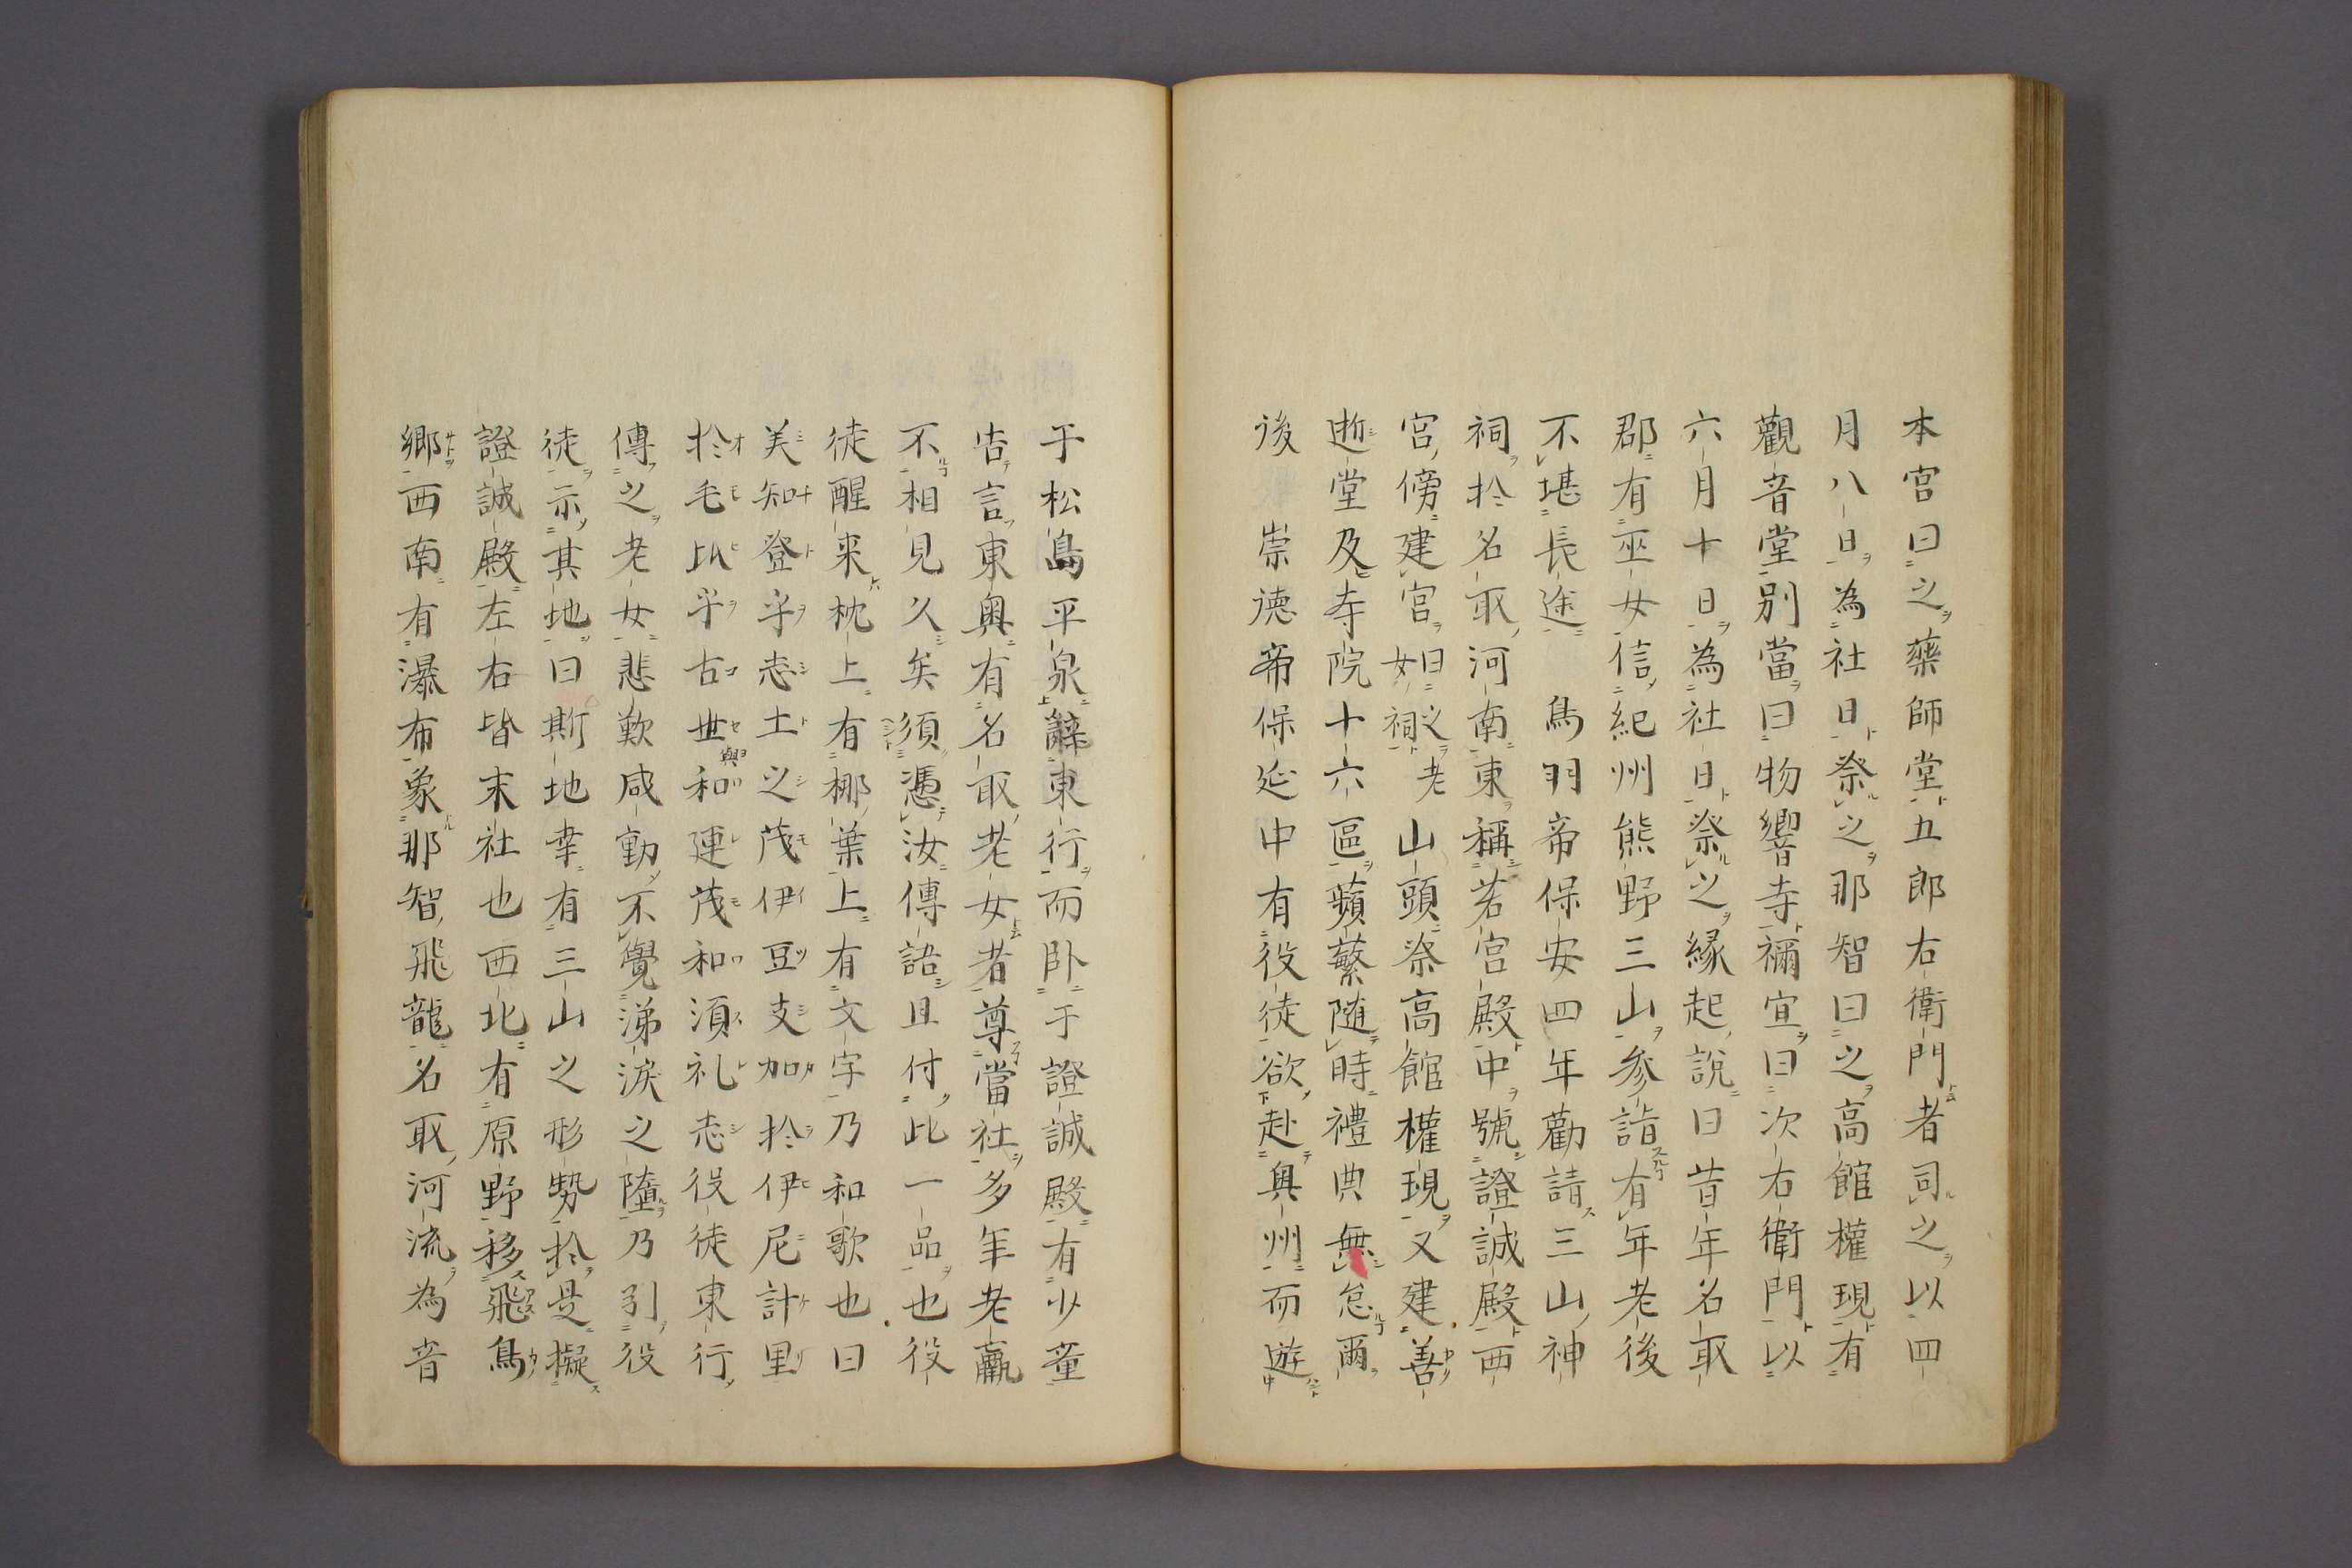 本宮曰之藥師堂五郎右衛門者司之以四
月八日為社日祭之那智曰之高館權現有
觀音堂別當曰物響寺禰宜曰次右衛門以
六月十日為社日祭之縁起説曰昔年名取
郡有巫女信紀州熊野三山参詣有年老後
不堪長途　鳥羽帝保安四年勸請三山神
祠於名取河南東稱若宮殿中號證誠殿西
宮傍建宮曰之老女祠山頭祭高館權現又建善
逝堂及寺院十六區蘋蘩随時禮典無怠爾
後　崇徳帝保延中有役徒欲赴奥州而遊
于松島平泉辭東行而卧于證誠殿有少童
告言東奥有名取老女者尊當社多年老羸
不相見久矣須憑汝傳語且付此一品也役
徒醒来枕上有梛葉上有文字乃和歌也曰
美知登乎志土之茂伊豆支加於伊尼計里
於毛比乎古世與和連茂和須礼志役徒東行
傳之老女悲歎咸動不覺涕涙之墮乃引役
徒示其地曰斯地幸有三山之形勢於是擬
證誠殿左右皆末社也西北有原野移飛鳥
郷西南有瀑布象那智飛龍名取河流為音